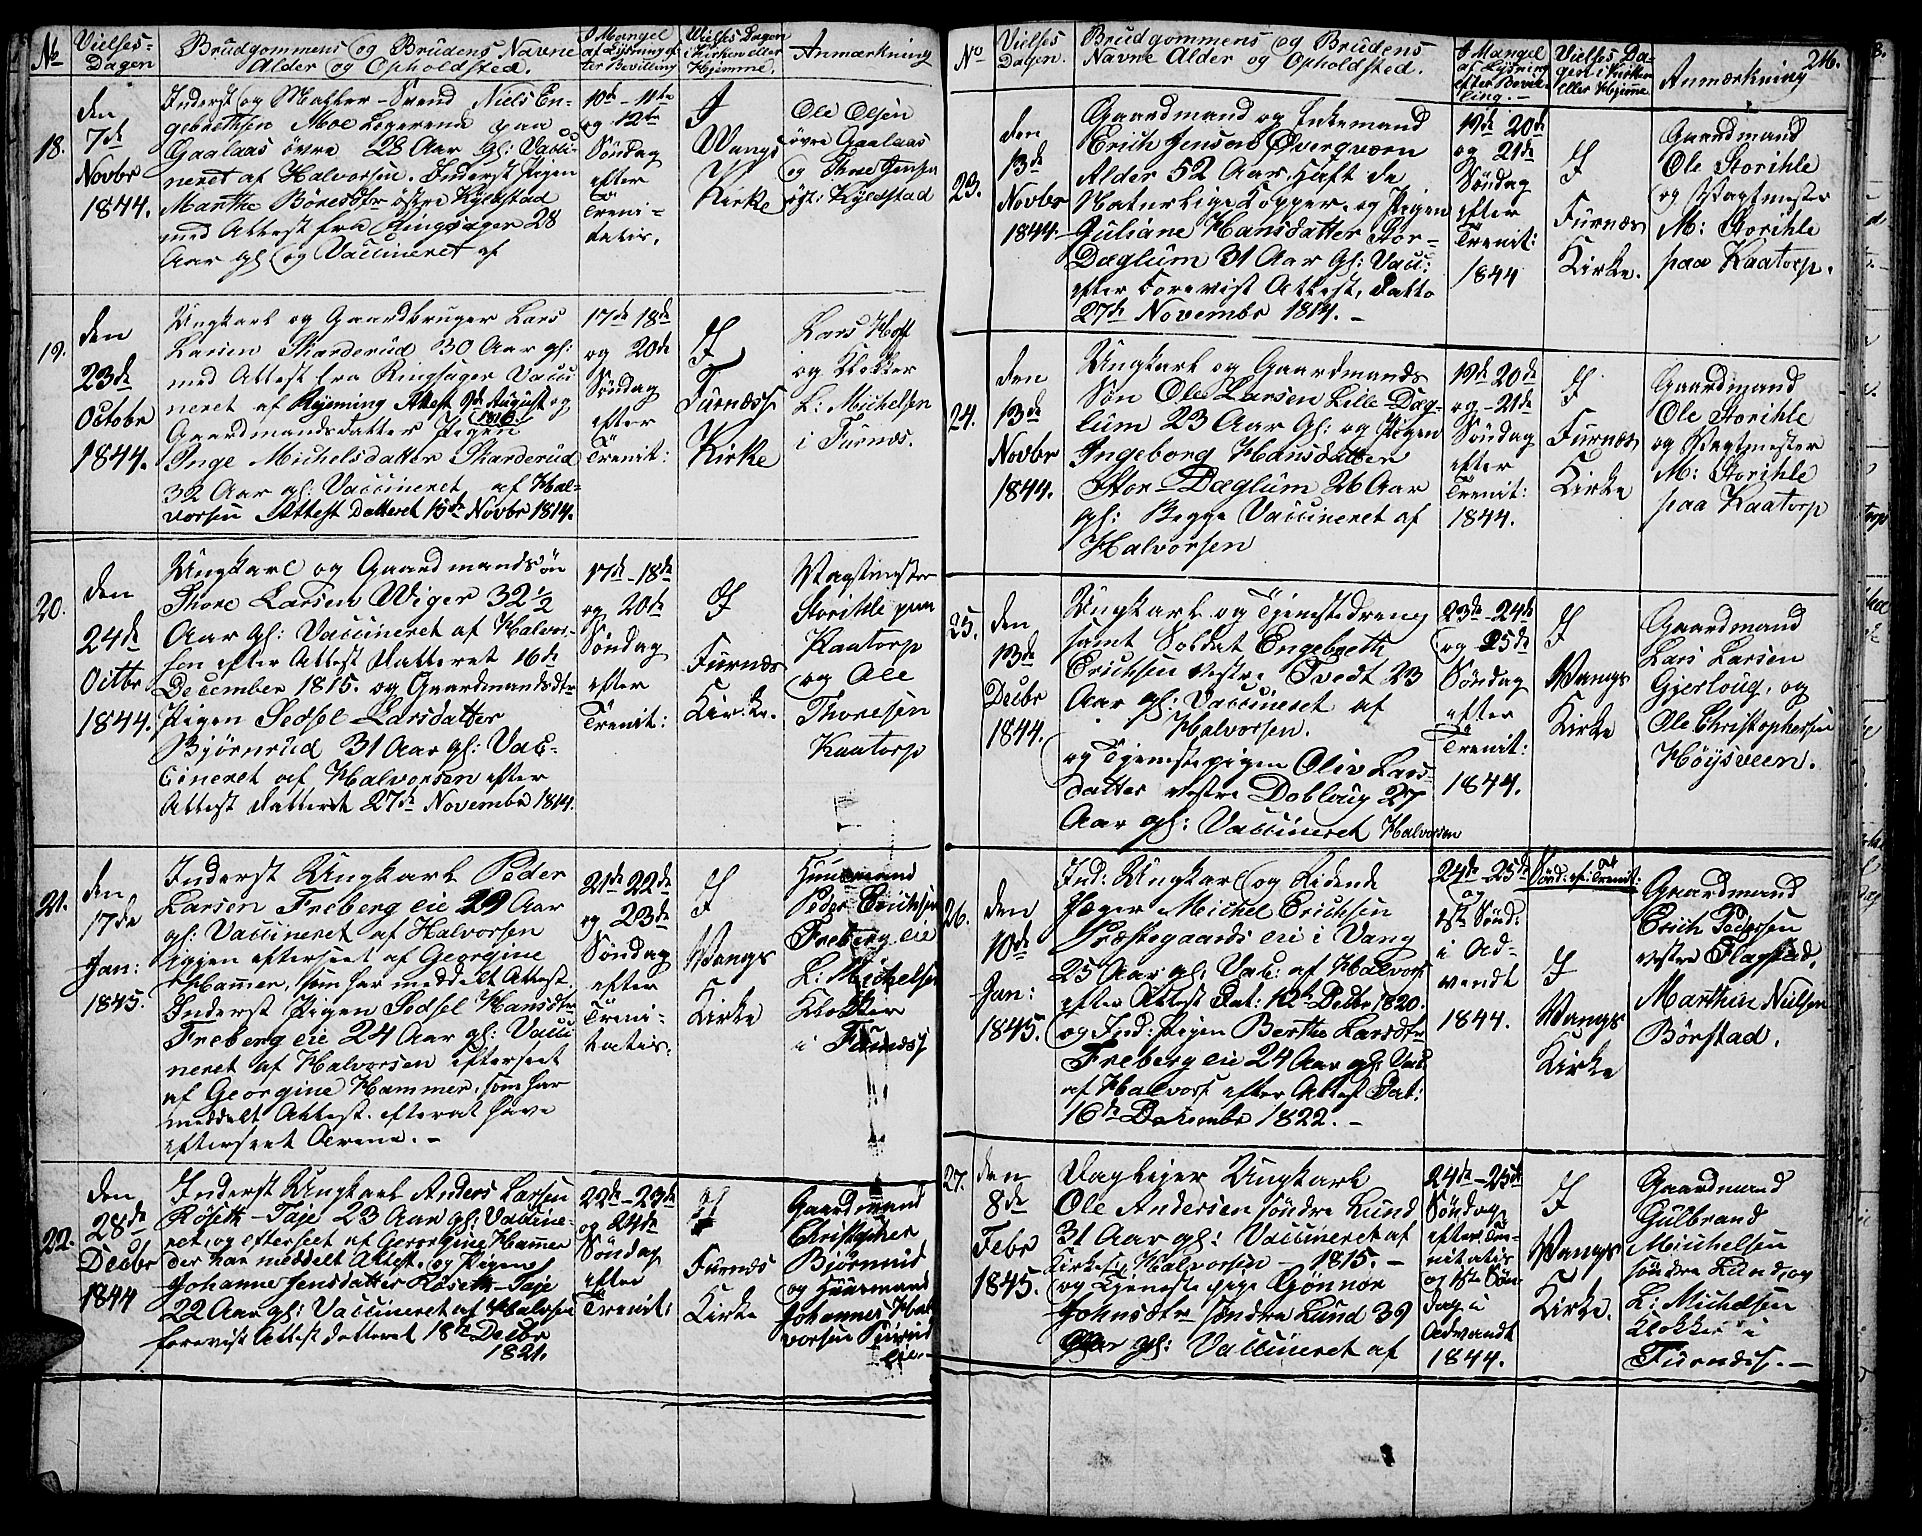 No
Vielses-
Dagen
Brudgommens og Brudens Navne
Alder og Opholdsted.
I Mangel
af Lysning ef-
ter Bevilling
Vielses Dagen
i Kirken eller
Hjemme.
Anmærkning
18.
den
7de
Novbr
1844.
Inderst og Møller-Svend Niels En-
gebrethsen Moe Logerende paa
Gaalaas övre 28 Aar gl: Vacci-
neret af Halvorsen. Inderst Pigen
Marthe Böresdtr östre Kyldstad
med Attest fra Ringsager 28
Aar gl og Vaccineret af
10de-11te
og 12te
Söndag
efter
Treni-
tatis.
I
Wangs
Kirke
Ole Olsen
övre Gaalaas
og Thore Jensen
öst: Kyldstad
19.
den
23de
Octobr
1844.
Ungkarl og Gaardbruger Lars
Larsen Skarderud 30 Aar gl:
med Attest fra Ringsager Vacci
neret af Hjeming Attest August og
1816
Gaardmandsdatter Pigen
Inge Michelsdatter Skarderud
32 Aar gl: Vaccineret af Hal-
vorsen Attest Datteret 15de Novbr 1814.
17de 18de
og 20de
Söndag
efter
Trenit:
I
Furnæss
Kirke
Lars Hoff
og Klokker
L: Michelsen
i Furnæs.
20.
den
24de
Octbr
1844.
Ungkarl og Gaardmandsön
Thore Larsen Wiger 32 1/2
Aar gl: Vaccineret af Halvor-
sen efter Attest Datteret 16de
December 1815. og Gaardmandsdtr
Pigen Sedsel Larsdatter
Björnrud 31 Aar gl: Vac-
cineret af Halvorsen efter
Attest Datteret 27de Novembr 1814.
17de-18de
og 20de
Söndag
efter
Trenit:
I
Furnæs
Kirke.
Vagtmester
Storihle paa
Kaatorp
og Ole
Thoresen
Kaatorp
21.
den
17de
Jan:
1845.
Inderst Ungkarl Peder
Larsen Freberg eie 29 Aar
gl: Vaccineret af Halvorsen
igjen efterseet af Georgine
Hammer, som har meddelt Attest.
Inderst Pigen Sedsel Hansdtr
Freberg eie 24 Aar gl: Vacci
neret af Halvorsen efterseet
af Georgine Hammer, som har
meddelt Attest. efterat have
efterseet Arene. -
21de 22de
og 23de
Söndag
efter
Treni-
tatis.
I
Wangs
Kirke
Huusmand
Peder Erichsen
Freberg eie
L: Michelsen
Klokker
i Furnæss
22.
den
28de
Decbr
1844
Inderst Ungkarl Anders Larsen
Röseth-Taje 23 Aar gl: Vaccine-
ret og efterseet af Georgine Hammer
der har meddelt Attest. og Pigen
Johanne Jensdatter Röseth-Taje
22 Aar gl: Vaccineret af Halvorsen
forevist Attest datteret 18de Decbr
1821.
22de-23de
og 24de
Söndag
efter
Trenit:
I
Furnæs
Kirke
Gaardmand
Christopher
Björnrud
og Huusmand
Johannes Hal
vorsen
No
Vielses
Dagen.
Brudgommens og Brudens
Navne Alder og Opholdsted.
I Mangel
af Lysning
efter Bevil-
ling. -
Vielses Da-
gen i Kirken
eller Hjemme
Anmærkning
216.
23.
den
13de
Novbr
1844.
Gaardmand og Enkemand
Erich Jensen Overqværn
Alder 52 Aar, haft de
Naturlige Kopper, og Pigen
Juliane Hansdatter Stor-
Dæglum 31 Aar gl: Vacc:
efter Forevist Attest, Datto
27de Novembr 1814. -
19de 20de
og 21de
Söndag
efter
Trenit:
1844
I
Furnæs
Kirke.
Gaardmand
Ole Storihle
og Vagtmester
M: Storihle
paa Kaatorp.
24.
den
13de
Novbr
1844.
Ungkarl og Gaardmands
Sön Ole Larsen Lille Dæg-
lum 23 Aar gl: og Pigen
Ingeborg Hansdatter
Stor-Dæglum 26 Aar
gl: Begge Vaccineret af
Halvorsen
19de 20de
og-21de
Söndag
efter
Trenit:
1844.
I
Furnæs
Kirke
Gaardmand
Ole Storihle
og Vagtmester
M: Storihle
paa Kaatorp
25.
den
13de
Decbr
1844.
Ungkarl og Tjenestedreng
samt Soldat Engebreth
Erichsen vestre Tvedt 23
Aar gl: Vaccineret af
Halvorsen.
og Tjenestepigen Oliv Lars-
datter vestre Dobloug 27
Aar gl: Vaccineret Halvorsen
23de-24de
og 25de
Söndag
efter
Trenit:
1844.
I
Wangs
Kirke
Gaardmand
Lars Larsen
Gjerloug, og
Ole Christophersen
Höysveen.
26.
den
10de
Jan:
1845.
Ind: Ungkarl og Ridende
Jæger Michel Erichsen
Præstegaards eie i Vang
25 Aar gl: Vac: af Halvors
efter Attest Dat: 12te Decbr 1820.
og Ind: Pigen Berthe Larsdtr
Freberg eie 24 Aar gl: Vac
af Halvors efter Attest Dat:
16de Decembr 1822. -
24de-25de
Sönd: ef: Trenit:
og
1ste Sönd:
i Ad-
vendt
1844.
I
Wangs
Kirke
Gaardmand
Erich Pedersen
vestre Flagstad,
Marthin Nielsen
Börstad.
27.
den
8de
Febr
1845.
Daglejer Ungkarl
Ole Andersen söndre Lund
31 Aar gl: Vaccineret af
Kirkes: Halvorsen - 1815. -
og Tjeneste pige Gönnor
Johnsdtr söndre Lund 39
Aar gl: Vaccineret af
24de-25de
Söndag
efter Tre-
nitatis
og 1ste Sön
dag i
Advendt
1844.
I
Wangs
Kirke.
Gaardmand
Gulbrand
Michelsen
söndre Lund, og
L: Michelsen
Klokker i
Furnæss. -